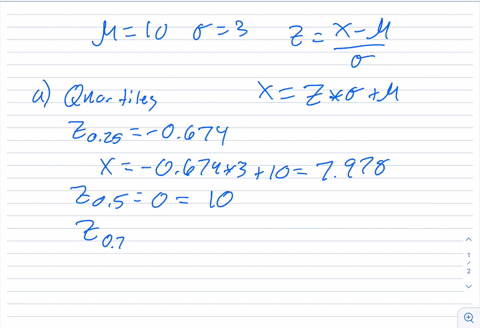 μ = 10 σ = 3 z = (x − μ)/σ
a) Quartiles x = z * σ + μ
z0.25 = −0.674
x = −0.674 * 3 + 10 = 7.978
z0.5 = 0 = 10
z0.7
1
/
2